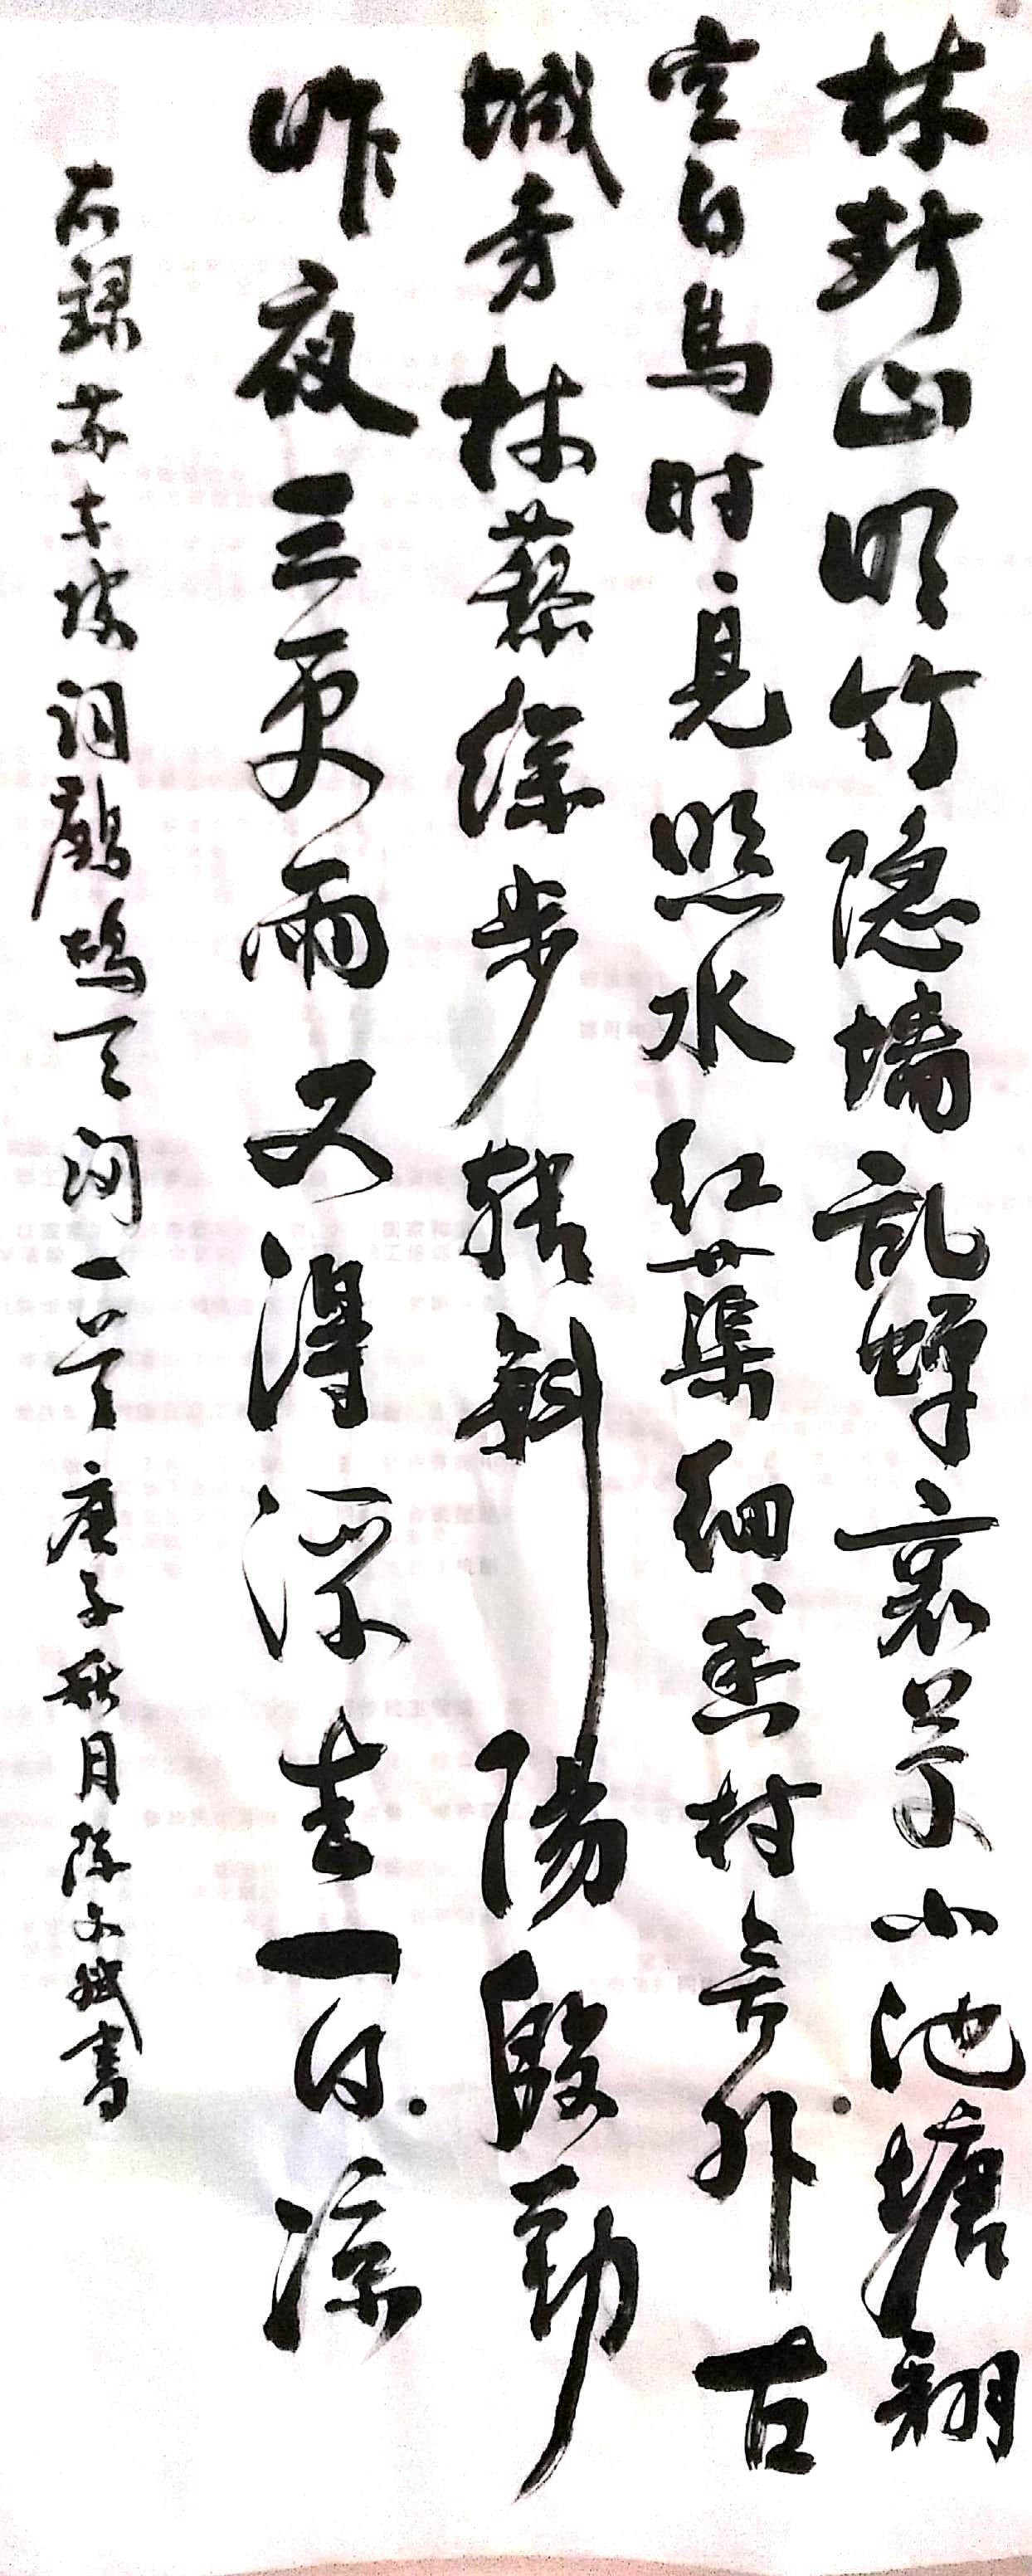 林断山明竹隐墙乱蝉衰草小池塘翻
空白鸟时见照水红蕖细香村舍外古
城旁杖藜徐步转斜阳殷勤
昨夜三更雨又得浮生一日凉
右录苏东坡词鹧鸪天词一首庚子秋月陈文斌书